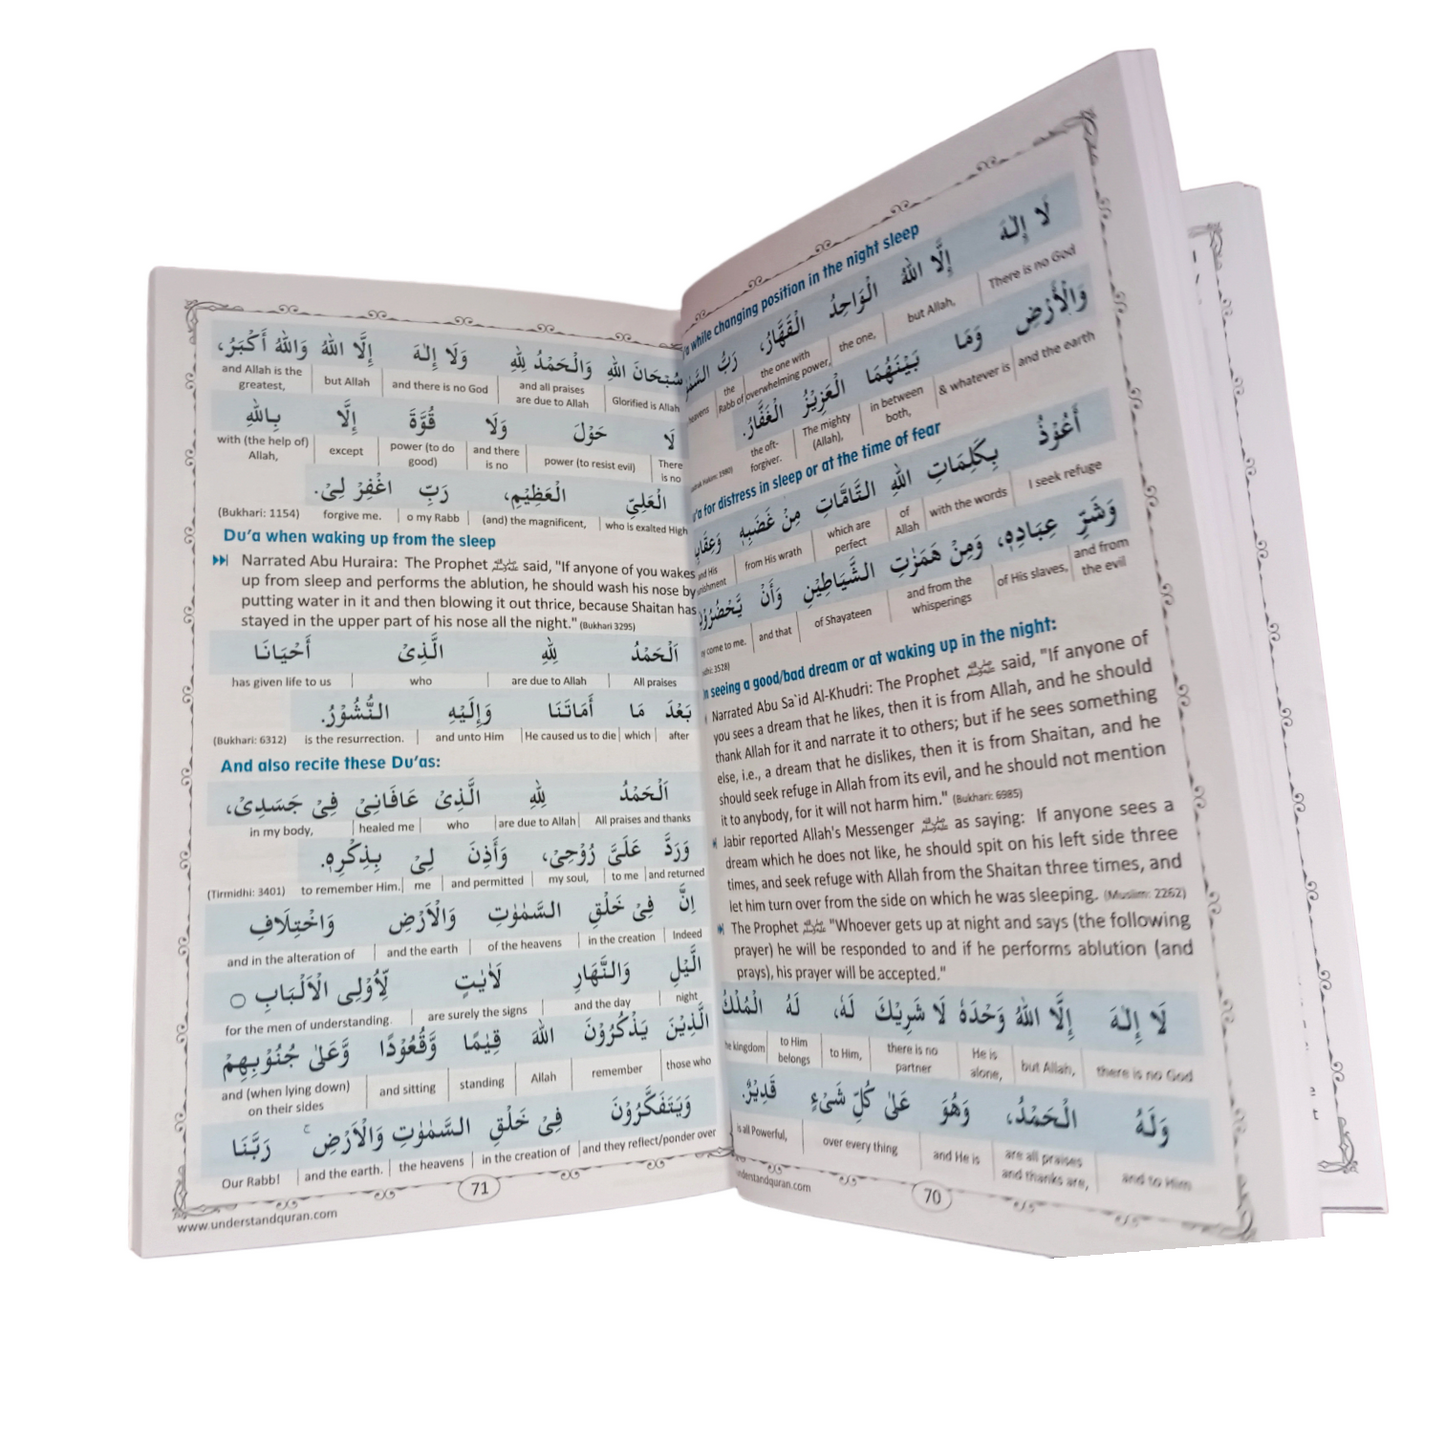 while changing position in the night sleep
لَا إِلٰهَ إِلَّا اللهُ الْوَاحِدُ الْقَهَّارُ، رَبُّ
There is no God | but Allah, | the one, | the one with overwhelming power, | the Rabb of | heavens
وَالْأَرْضِ وَمَا بَيْنَهُمَا الْعَزِيْزُ الْغَفَّارُ.
and the earth | & whatever is | in between both, | The mighty (Allah), | the oft-forgiver.
for distress in sleep or at the time of fear
أَعُوْذُ بِكَلِمَاتِ اللهِ التَّامَّاتِ مِنْ غَضَبِهٖ
I seek refuge | with the words | of Allah | which are perfect | from His wrath | and His
وَشَرِّ عِبَادِهٖ، وَمِنْ هَمَزٰتِ الشَّيَاطِيْنِ وَأَنْ يَّحْضُرُوْنِ
and from the evil | of His slaves, | and from the whisperings | of Shayateen | and that | come to me.
3528)
seeing a good/bad dream or at waking up in the night:
Narrated Abu Sa`id Al-Khudri: The Prophet ﷺ said, "If anyone of
you sees a dream that he likes, then it is from Allah, and he should
thank Allah for it and narrate it to others; but if he sees something
else, i.e., a dream that he dislikes, then it is from Shaitan, and he
should seek refuge in Allah from its evil, and he should not mention
it to anybody, for it will not harm him." (Bukhari: 6985)
Jabir reported Allah's Messenger ﷺ as saying: If anyone sees a
dream which he does not like, he should spit on his left side three
times, and seek refuge with Allah from the Shaitan three times, and
let him turn over from the side on which he was sleeping. (Muslim: 2262)
The Prophet ﷺ "Whoever gets up at night and says (the following
prayer) he will be responded to and if he performs ablution (and
prays), his prayer will be accepted."
لَا إِلٰهَ إِلَّا اللهُ وَحْدَهٗ لَا شَرِيْكَ لَهٗ، لَهُ الْمُلْكُ
there is no God | but Allah, | He is alone, | there is no partner | to Him, | to Him belongs | kingdom
وَلَهُ الْحَمْدُ، وَهُوَ عَلٰى كُلِّ شَيْءٍ قَدِيْرٌ.
and to Him | are all praises and thanks are, | and He is | over every thing | is all Powerful,
70
سُبْحَانَ اللهِ وَالْحَمْدُ لِلّٰهِ وَلَا إِلٰهَ إِلَّا اللهُ وَاللهُ أَكْبَرُ،
Glorified is Allah | and all praises are due to Allah | and there is no God | but Allah | and Allah is the greatest,
لَا حَوْلَ وَلَا قُوَّةَ إِلَّا بِاللهِ
There is no | power (to resist evil) | and there is no | power (to do good) | except | with (the help of) Allah,
الْعَلِيِّ الْعَظِيْمِ، رَبِّ اغْفِرْ لِيْ.
who is exalted High | (and) the magnificent, | o my Rabb | forgive me. (Bukhari: 1154)
Du'a when waking up from the sleep
Narrated Abu Huraira: The Prophet ﷺ said, "If anyone of you wakes
up from sleep and performs the ablution, he should wash his nose by
putting water in it and then blowing it out thrice, because Shaitan has
stayed in the upper part of his nose all the night." (Bukhari 3295)
اَلْحَمْدُ لِلّٰهِ الَّذِيْ أَحْيَانَا
All praises | are due to Allah | who | has given life to us
بَعْدَ مَا أَمَاتَنَا وَإِلَيْهِ النُّشُوْرُ.
after | which | He caused us to die | and unto Him | is the resurrection. (Bukhari: 6312)
And also recite these Du'as:
اَلْحَمْدُ لِلّٰهِ الَّذِيْ عَافَانِيْ فِيْ جَسَدِيْ،
All praises and thanks | are due to Allah | who | healed me | in my body,
وَرَدَّ عَلَيَّ رُوْحِيْ، وَأَذِنَ لِيْ بِذِكْرِهٖ.
and returned | to me | my soul, | and permitted | me | to remember Him. (Tirmidhi: 3401)
اِنَّ فِيْ خَلْقِ السَّمٰوٰتِ وَالْاَرْضِ وَاخْتِلَافِ
Indeed | in the creation | of the heavens | and the earth | and in the alteration of
الَّيْلِ وَالنَّهَارِ لَاٰيٰتٍ لِّاُوْلِى الْاَلْبَابِ
night | and the day | are surely the signs | for the men of understanding.
الَّذِيْنَ يَذْكُرُوْنَ اللهَ قِيٰمًا وَّقُعُوْدًا وَّعَلٰى جُنُوْبِهِمْ
those who | remember | Allah | standing | and sitting | and (when lying down) on their sides
وَيَتَفَكَّرُوْنَ فِيْ خَلْقِ السَّمٰوٰتِ وَالْاَرْضِ ۚ رَبَّنَا
and they reflect/ponder over | in the creation of | the heavens | and the earth. | Our Rabb!
71
www.understandquran.com